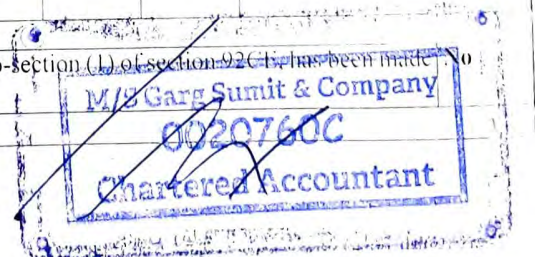 o-section (1) of section 92CE, has been made No
M/S Garg Sumit & Company
0020760C
Chartered Accountant